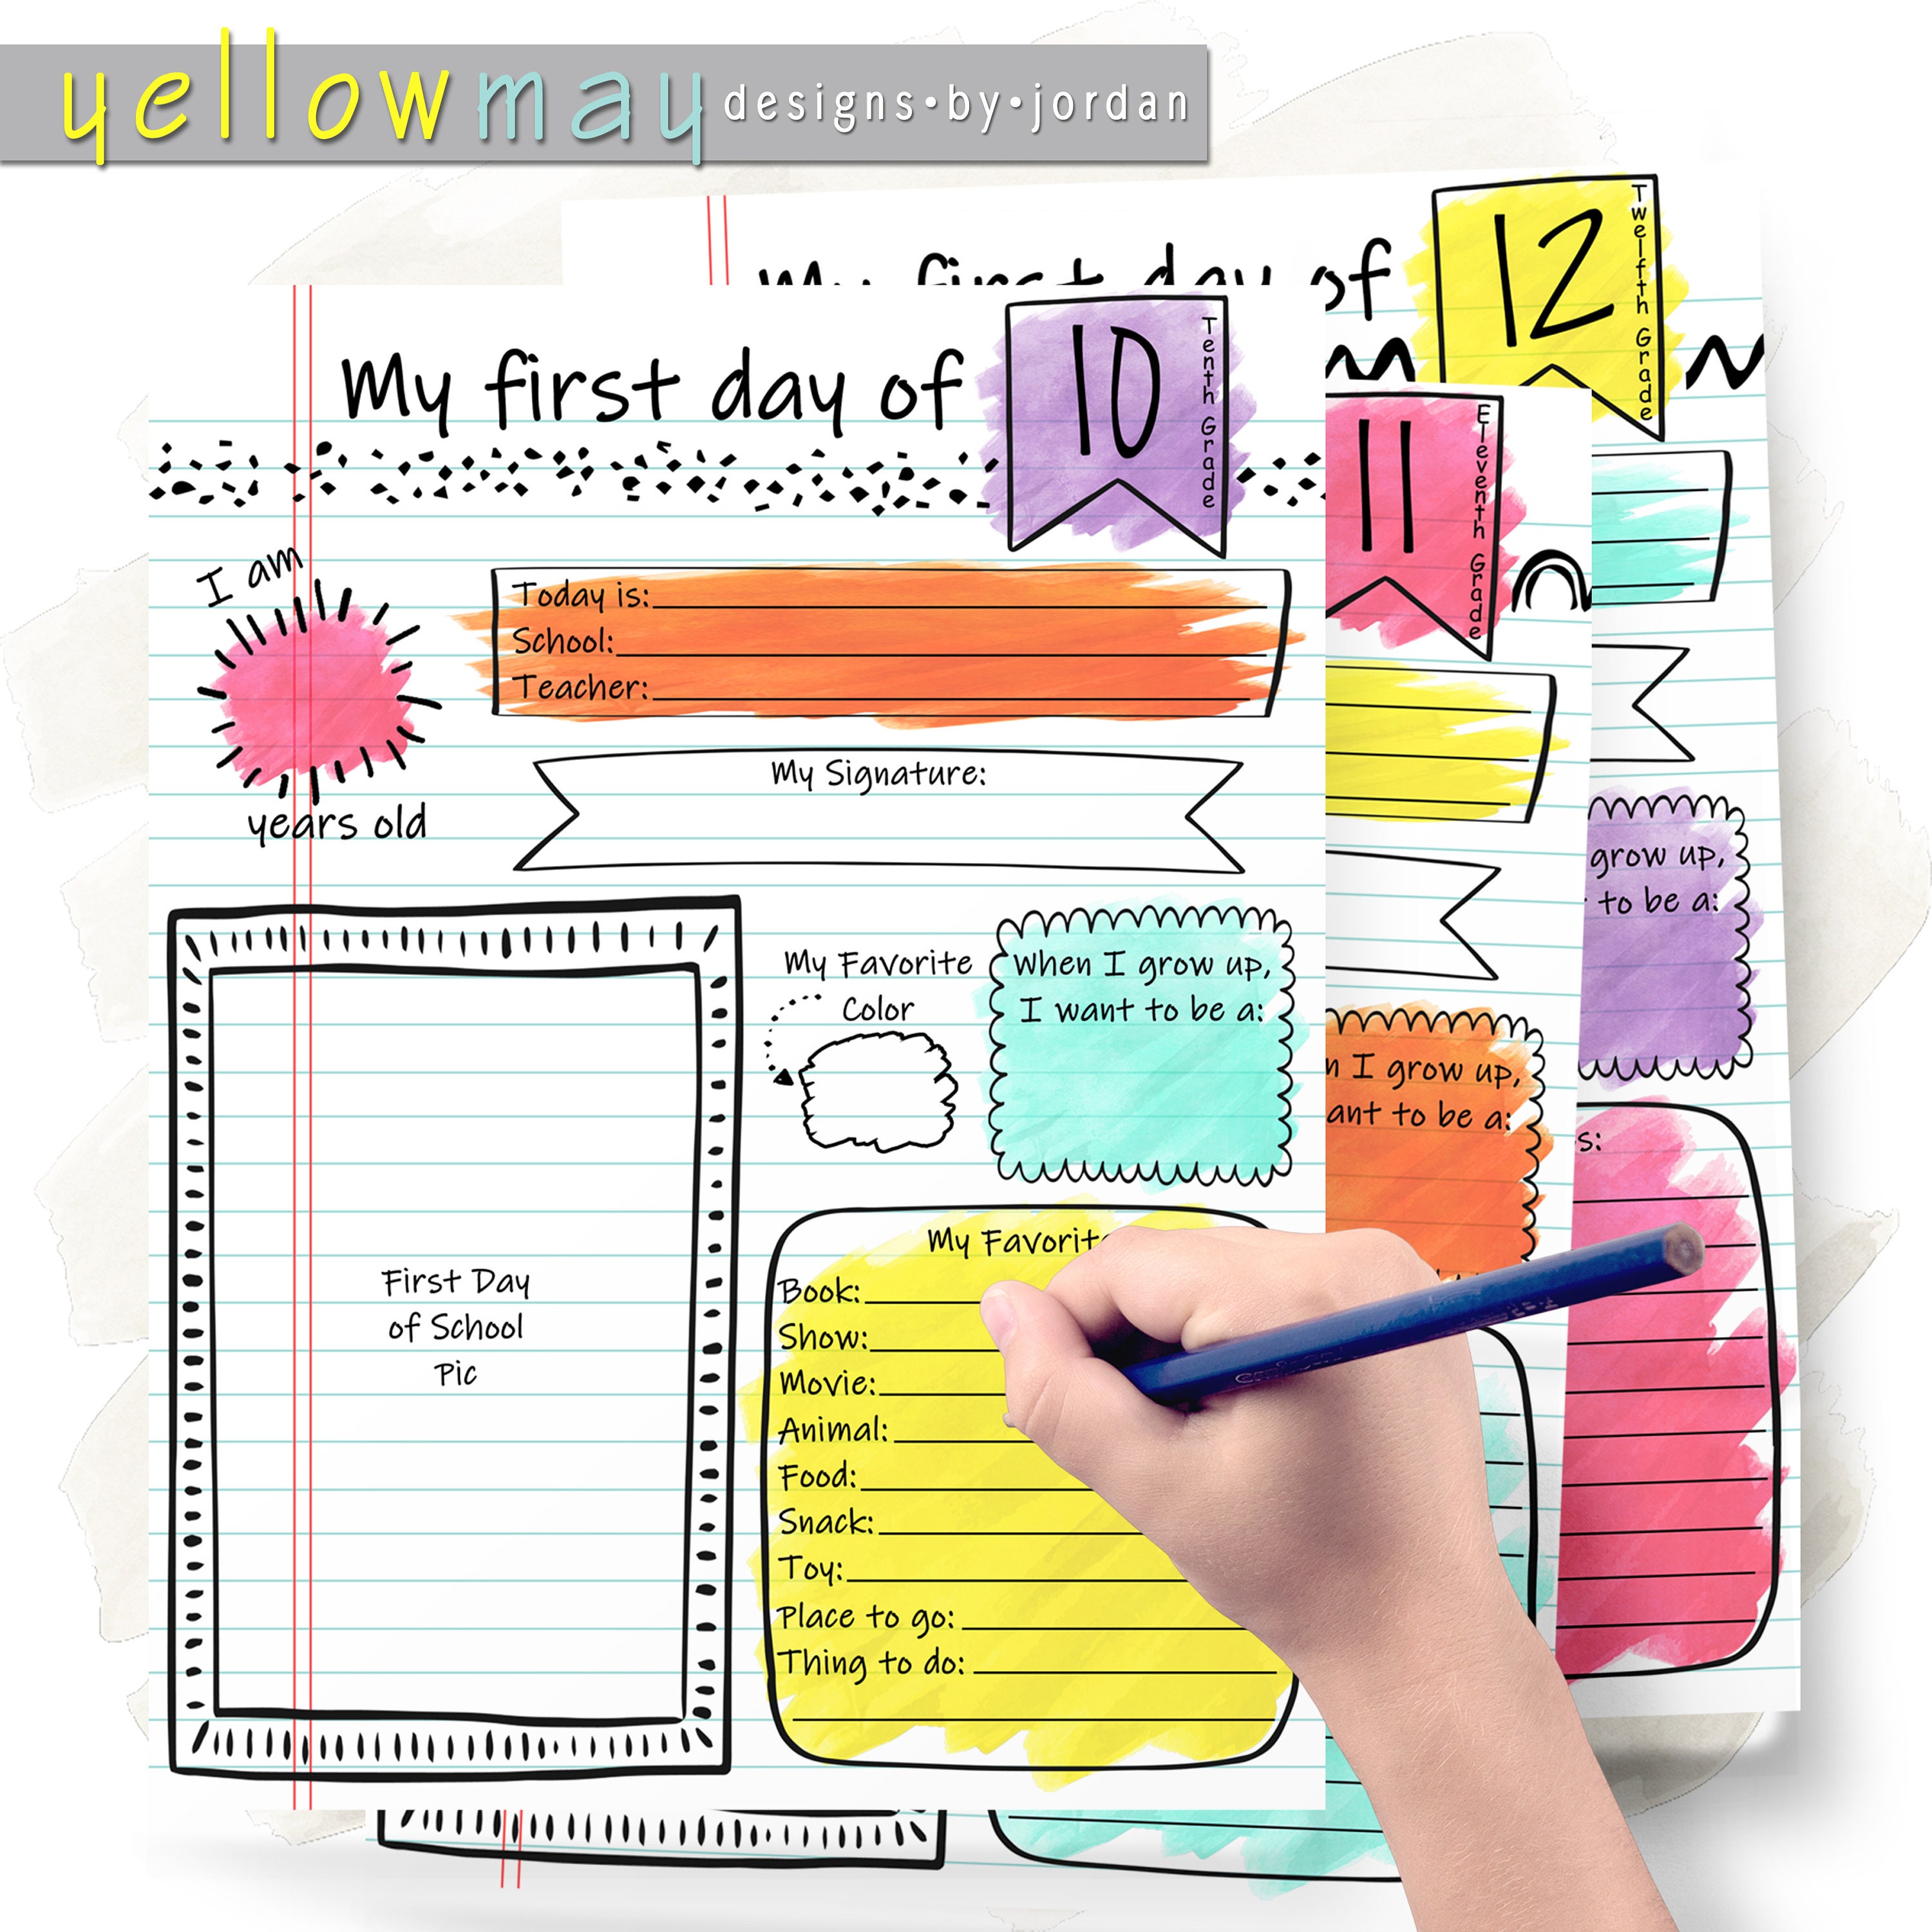 yellowmay designs•by•jordan
My first day of
12
Twelfth Grade
My first day of
10
Tenth Grade
11
Eleventh Grade
I am
years old
Today is:
School:
Teacher:
My Signature:
grow up,
to be a:
My Favorite
Color
When I grow up,
I want to be a:
I grow up,
to be a:
First Day
of School
Pic
My Favorit
Book:
Show:
Movie:
Animal:
Food:
Snack:
Toy:
Place to go:
Thing to do: